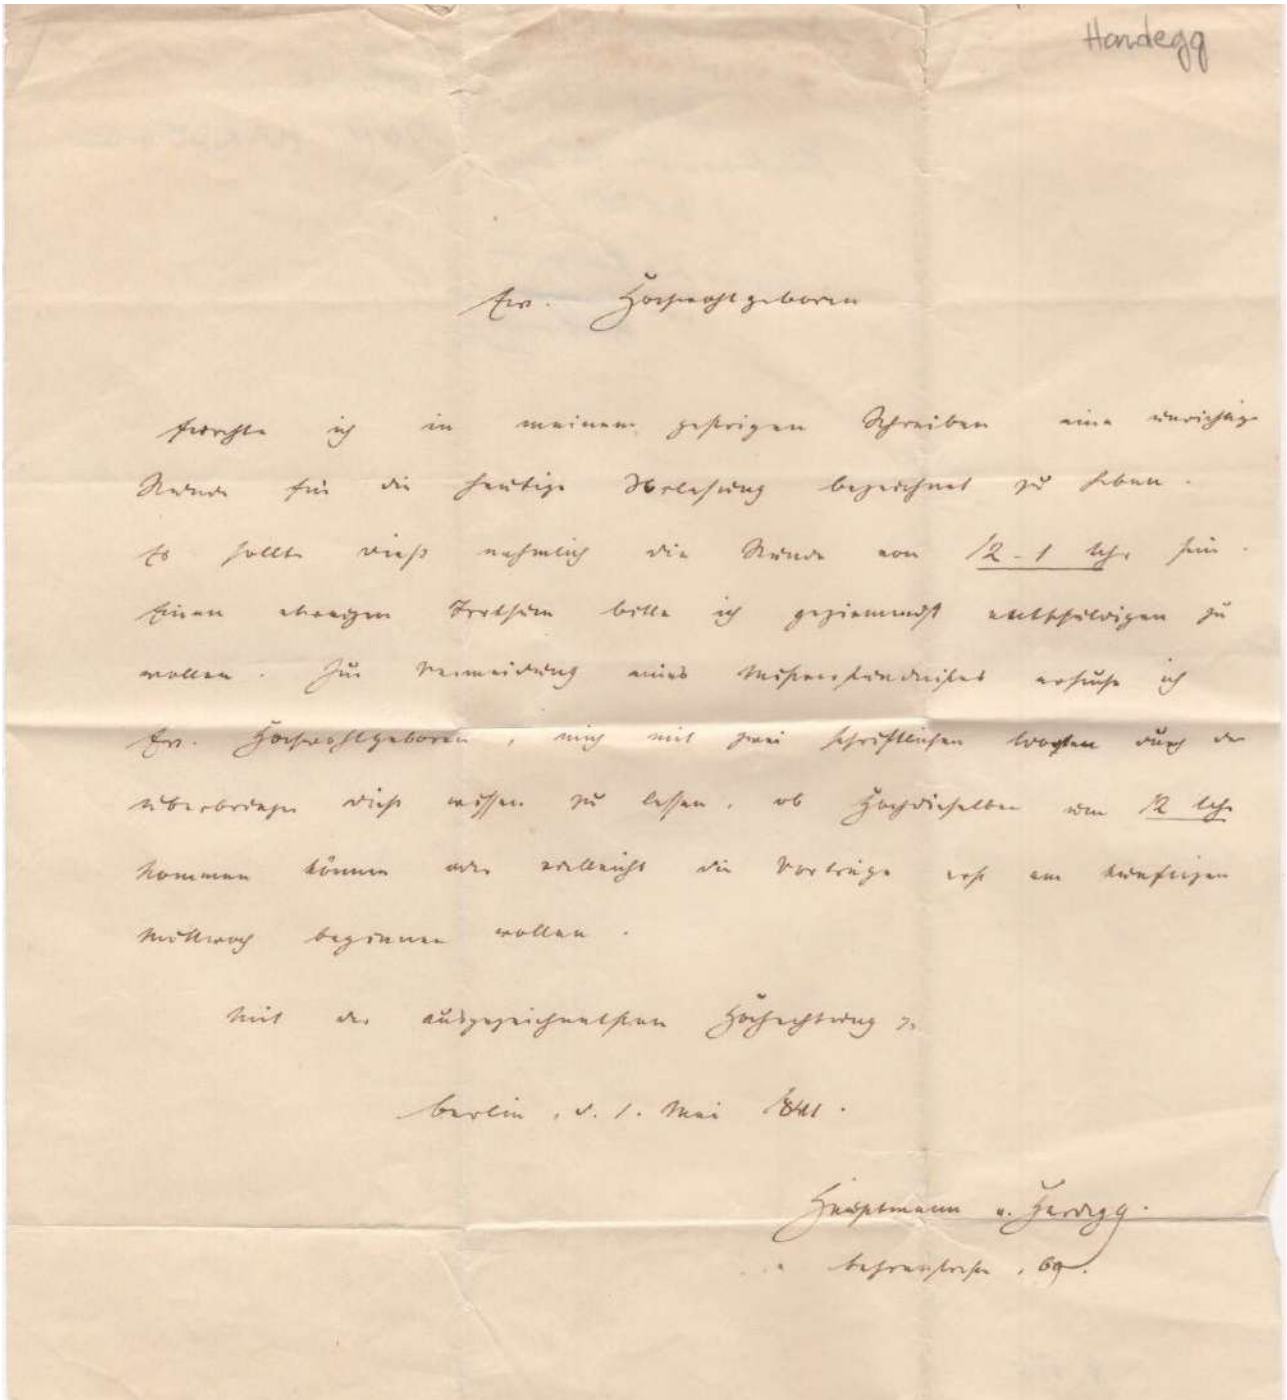 Handegg
Ew. Hochwohlgeboren
fürchte ich in meinem gestrigen Schreiben eine unrichtige
Stunde für die heutige Vorlesung bezeichnet zu haben.
Es sollte dieß nehmlich die Stunde von 12-1 Uhr sein.
Einen etwaigen Irrthum bitte ich geziemendst entschuldigen zu
wollen. Zur Vermeidung eines Mißverständnißes ersuche ich
Ew. Hochwohlgeboren, mich mit zwei schriftlichen Worten durch den
Überbringer dieß wissen zu lassen, ob Hochdieselben um 12 Uhr
kommen können oder vielleicht die Vorträge erst am künftigen
Mittwoch beginnen wollen.
Mit der ausgezeichnetsten Hochachtung
Berlin, d. 1. Mai 1841.
Hauptmann v. Hardegg.
Behrenstraße, 69.